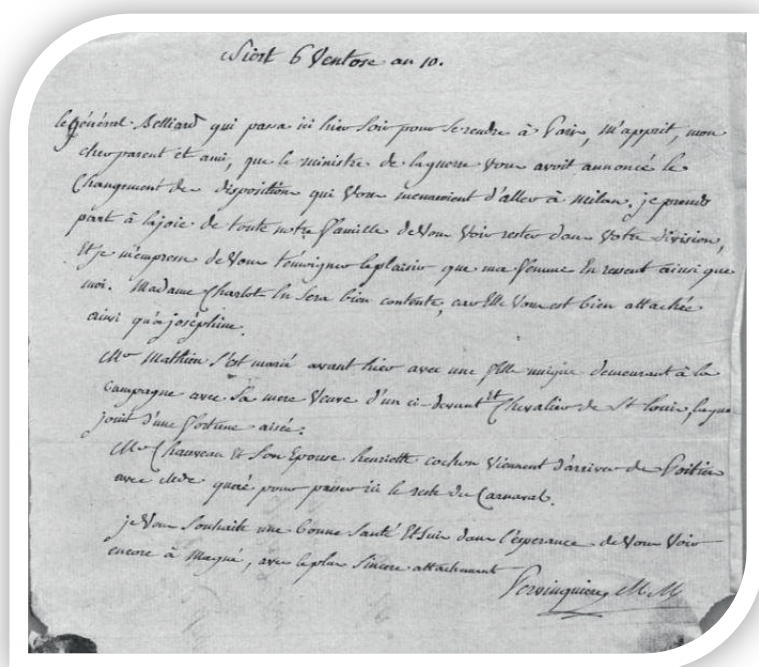 Niort 6 Ventose an 10.
le général Belliard qui passa ici hier soir pour se rendre à Paris, m'apprit, mon
cher parent et ami, que le ministre de la guerre vous avoit annoncé le
Changement de disposition qui vous menaçoient d'aller à milan. je prends
part à la joie de toute notre famille de vous voir rester dans votre division,
Et je m'empresse de vous témoigner le plaisir que ma femme En ressent ainsi que
moi. Madame Charlot En sera bien contente, car Elle vous est bien attachée
ainsi qu'à joséphine.
Mr Mathieu s'est marié avant hier avec une fille unique demeurant à la
Campagne avec sa mere Veuve d'un ci-devant Chevalier de St Louis,
jouit d'une fortune aisée.
Mr Chauveau Et son Epouse henriette cochon viennent d'arriver de Poitiers
avec pour passer ici le reste du Carnaval.
je vous souhaite une bonne santé Et suis dans l'esperance de vous voir
encore à Magné, avec le plus sincere attachement
Pervinquiere M. M